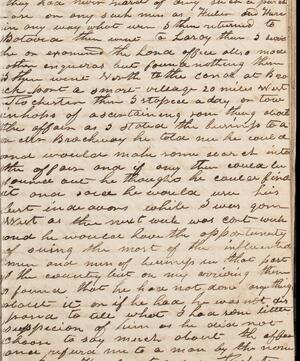 they had never heard of any such a place
or on any such men as
in any way what ever I then returned to
Batavia then went to Laroy then I was
he on examined the Land office also made
other enquires but found nothing then
I then went North to the canal at Bro
ck port a smart village 20 miles West
Rochester then I stopted a day on tow
in hops of ascertaining some thing about
the affair as I stated the buisness to a
Brockway he told me he could
and would make some search into
the affair and if any thing could be
found out he thought he could find
it and said he would use his
best indavors while I was gon
West as the next week was cort week
and he would have the oppertunety
of seuing the most of the influential
men and men of buisness in that part
of the country but on my ariving then
I found that he had not done any thing
about it or if he had he was not dis
posed to tell what I had some little
suspecion of him as he did not
choose to say much about the affair
and referd me to a man by the name